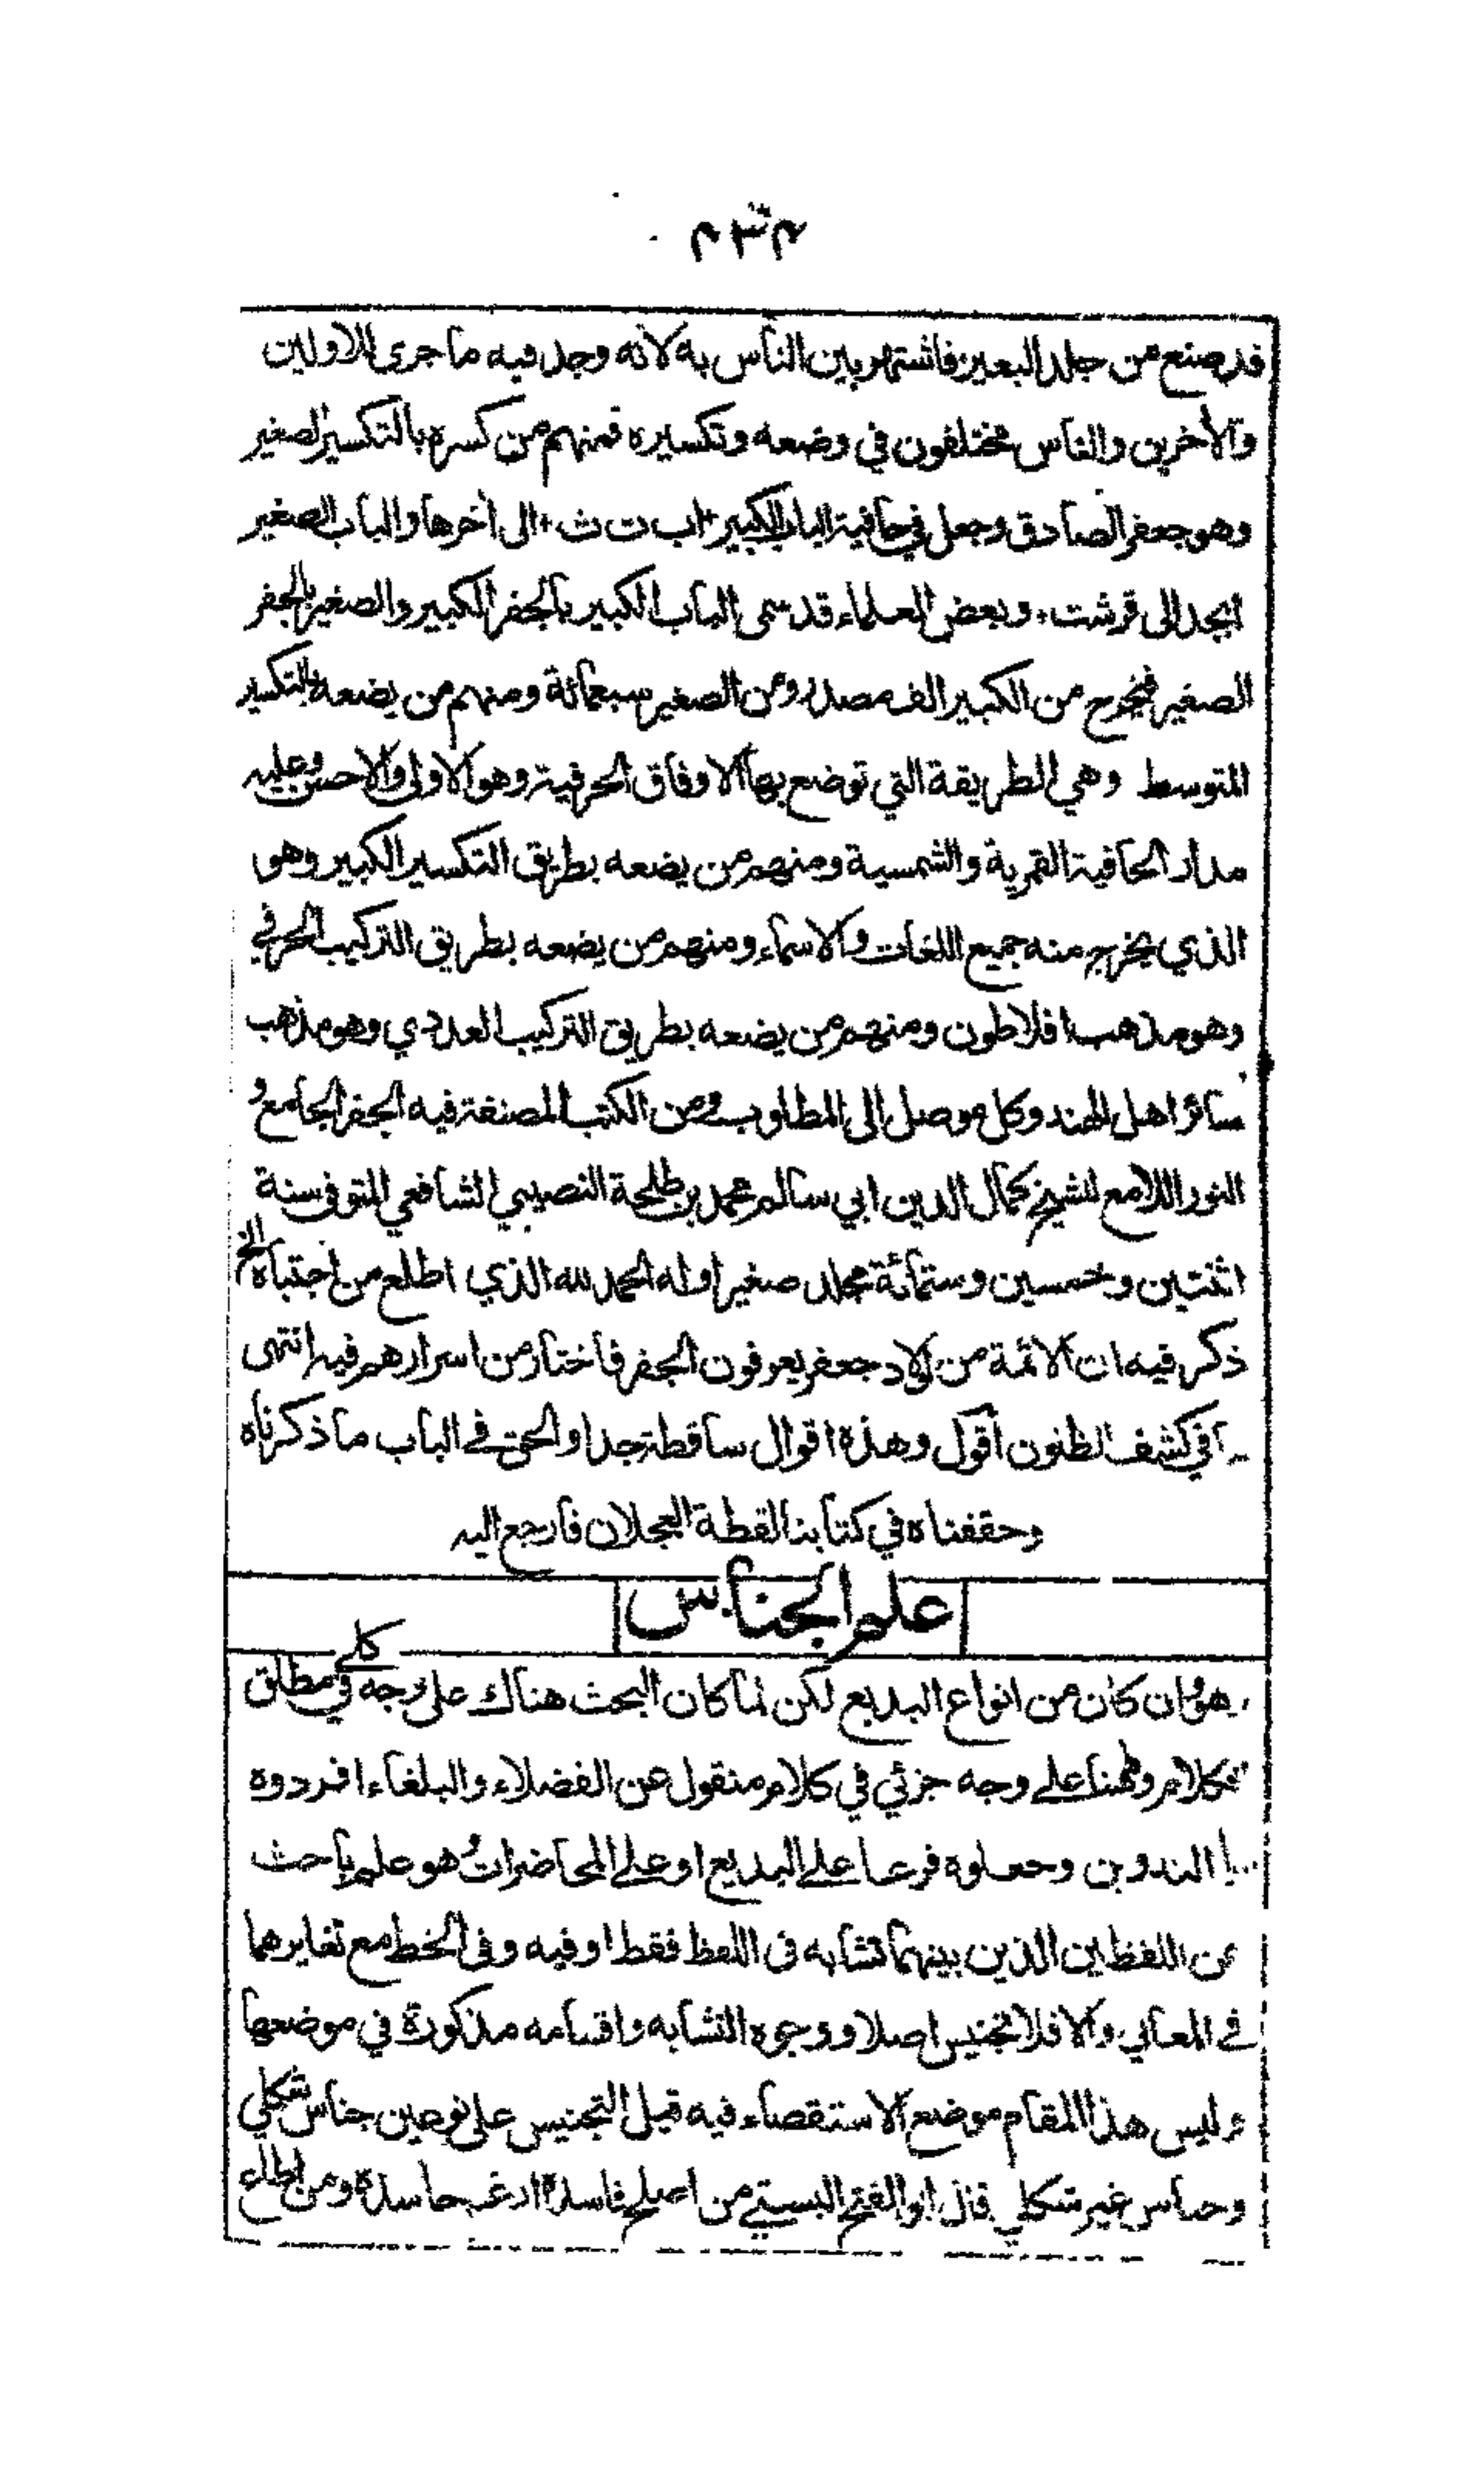 ٤٣٤
قد صنع من جلد البعير فاشتهر بين الناس به لانه وجد فيه ما جرى للاولين
والأخرين والناس مختلفون في وضعه وتكسيره فمنهم من كسره بالتكسير الصغير
وهو جعفر الصادق وجعل في حافية الباب الكبير اب ت ث الى أخرها والباب الصغير
ابجد الى قرشت وبعض العلماء قد سمى الباب الكبير بالجفر الكبير والصغير بالجفر
الصغير فيخرج من الكبير الف مصدر ومن الصغير سبعمائة ومنهم من يضعه بالتكسير
المتوسط وهي الطريقة التي توضع بها الاوفاق الحرفية وهو الاولى والاحسن وعليه
مدار الحافية القمرية والشمسية ومنهم من يضعه بطريق التكسير الكبير وهو
الذي يخرج منه جميع اللغات والاسماء ومنهم من يضعه بطريق التركيب الحرفي
وهو مذهب افلاطون ومنهم من يضعه بطريق التركيب العددي وهو مذهب
سائر اهل الهند وكل موصل الى المطلوب ومن الكتب المصنفة فيه الجفر الجامع و
النور اللامع للشيخ كمال الدين ابي سالم محمد بن طلحة النصيبي الشافعي المتوفى سنة
اثنتين وخمسين وستمائة مجلد صغير اوله الحمد لله الذي اطلع من اجتباه الخ
ذكر فيه ان الائمة من اولاد جعفر يعرفون الجفر فاختار من اسرارهم فيه انتهى
ما في كشف الظنون أقول وهذه اقوال ساقطة جدا والحق في الباب ما ذكرناه
وحققناه في كتابنا لقطة العجلان فارجع اليه
علم الجناس
هو وان كان من انواع البديع لكن لما كان البحث هناك على وجه كلي في مطلق
الكلام وههنا على وجه جزئي في كلام منقول عن الفضلاء والبلغاء افردوه
التدوين وجعلوه فرعا على البديع او على المحاضرات وهو علم باحث
عن اللفظين الذين بينهما تشابه في اللفظ فقط او فيه وفى الخط مع تغايرهما
في المعاني والا فلا تجنيس اصلا ووجوه التشابه واقسامه مذكورة في موضعها
وليس هذا المقام موضع الاستقصاء فيه قيل التجنيس على نوعين جناس شكلي
وجناس غير شكلي قال ابو الفتح البستي من اصلح فاسده ارغم حاسده ومن اطاع